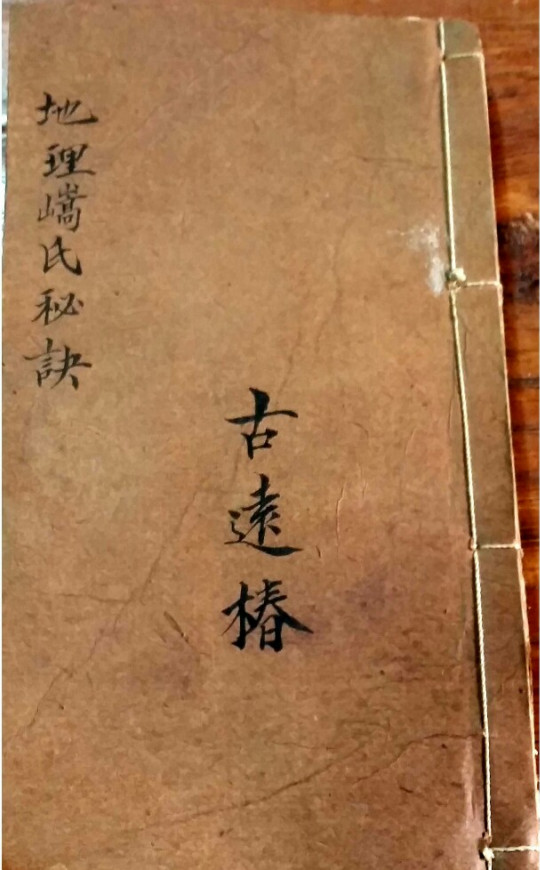 地理嵪氏秘訣
古遠椿